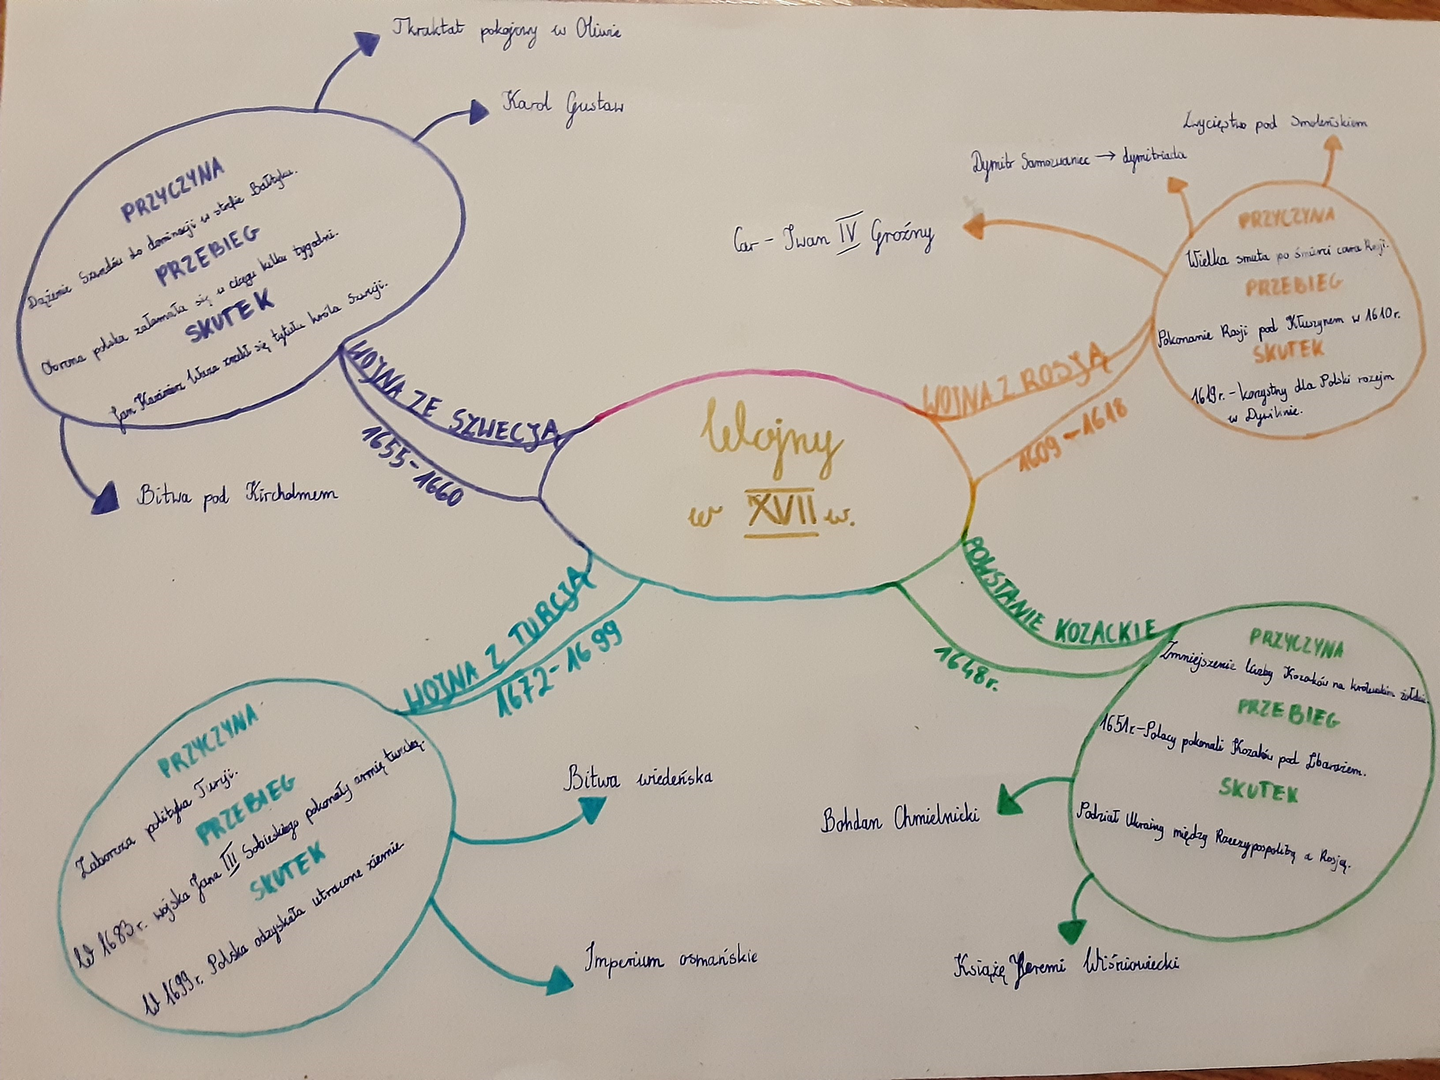 Wojny
w XVII w.
WOJNA ZE SZWECJĄ
1655-1660
PRZYCZYNA
Dążenie Szwedów do dominacji w strefie Bałtyku.
PRZEBIEG
Obrona polska załamała się w ciągu kilku tygodni.
SKUTEK
Jan Kazimierz Waza zrzekł się tytułu króla Szwecji.
Tkraktat pokojowy w Oliwie
Karol Gustaw
Bitwa pod Kircholmem
WOJNA Z ROSJĄ
1609-1618
PRZYCZYNA
Wielka smuta po śmierci cara Rosji.
PRZEBIEG
Pokonanie Rosji pod Kłuszynem w 1610r.
SKUTEK
1619r. - korzystny dla Polski rozejm
w Dywilinie.
Zwycięstwo pod Smoleńskiem
Dymitr Samozwaniec → dymitriada
Car - Iwan IV Groźny
WOJNA Z TURCJĄ
1672-1699
PRZYCZYNA
Zaborcza polityka Turcji.
PRZEBIEG
W 1683r. wojska Jana III Sobieskiego pokonały armię turecką.
SKUTEK
W 1699r. Polska odzyskała utracone ziemie
Bitwa wiedeńska
Imperium osmańskie
POWSTANIE KOZACKIE
1648r.
PRZYCZYNA
Zmniejszenie liczby Kozaków na królewskim żołdzie.
PRZEBIEG
1651r.-Polacy pokonali Kozaków pod Zbarażem.
SKUTEK
Podział Ukrainy między Rzeczypospolitą a Rosją.
Bohdan Chmielnicki
Książę Jeremi Wiśniowiecki